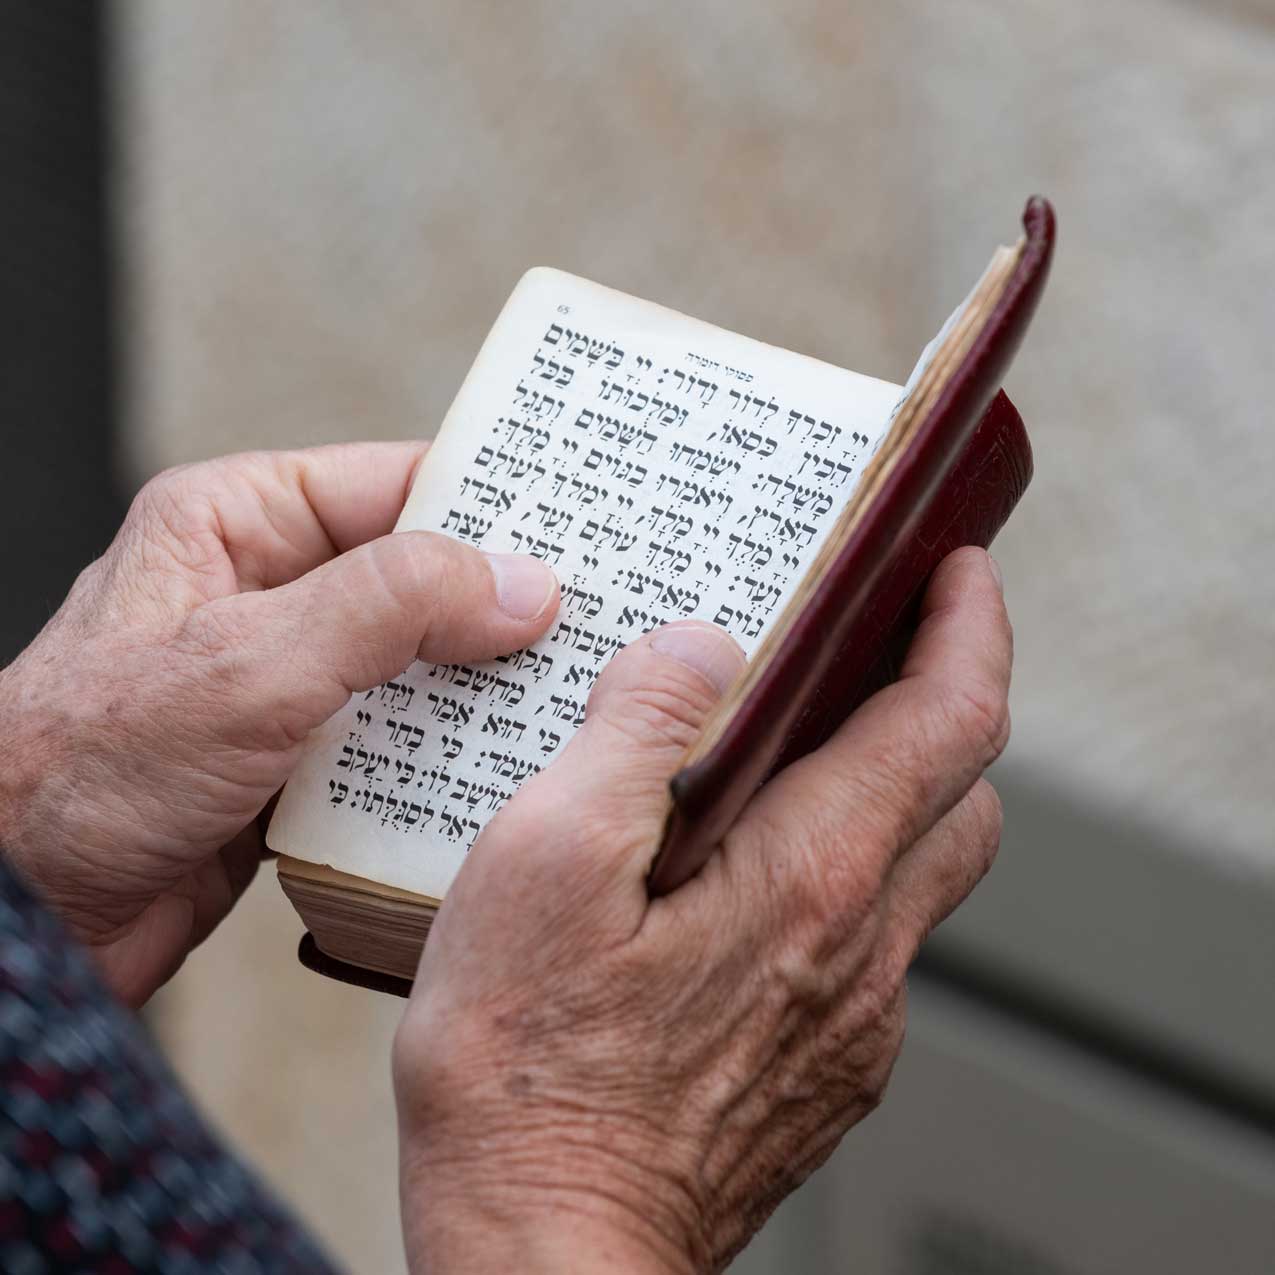 65
פסוקי דזמרה
יְיָ זִכְרְךָ לְדֹר וָדֹר: יְיָ בַּשָּׁמַיִם
הֵכִין כִּסְאוֹ, וּמַלְכוּתוֹ בַּכֹּל
מָשָׁלָה: יִשְׂמְחוּ הַשָּׁמַיִם וְתָגֵל
הָאָרֶץ, וְיֹאמְרוּ בַגּוֹיִם יְיָ מָלָךְ:
יְיָ מֶלֶךְ יְיָ מָלָךְ, יְיָ יִמְלֹךְ לְעוֹלָם
וָעֶד: יְיָ מֶלֶךְ עוֹלָם וָעֶד, אָבְדוּ
גוֹיִם מֵאַרְצוֹ: יְיָ הֵפִיר עֲצַת
גּוֹיִם
תָקוּם
מַחְשְׁבוֹת
כִּי הוּא אָמַר וַיֶּהִי,
כִּי בָחַר יְיָ
לוֹ: כִּי יַעֲקֹב
לִסְגֻלָּתוֹ: כִּי